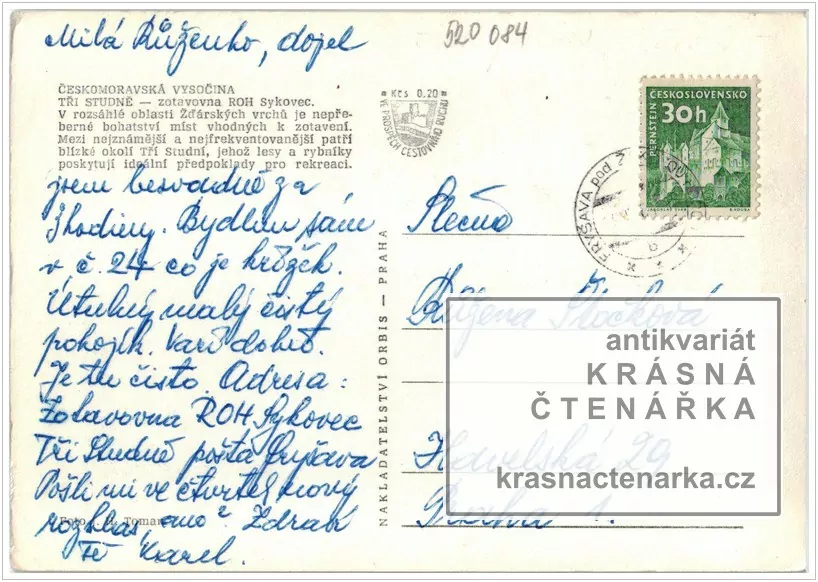 Milá Růženko, dojel
520 084
ČESKOMORAVSKÁ VYSOČINA
TŘI STUDNĚ — zotavovna ROH Sykovec.
V rozsáhlé oblasti Žďárských vrchů je nepře-
berné bohatství míst vhodných k zotavení.
Mezi nejznámější a nejfrekventovanější patří
blízké okolí Tří Studní, jehož lesy a rybníky
poskytují ideální předpoklady pro rekreaci.
Kčs 0.20
VE PROSPĚCH CESTOVNÍHO RUCHU
ČESKOSLOVENSKO
30h
PERNŠTEJN
FRYŠAVA pod
jsem bezvadně za
3 hodiny. Bydlím sám
v č. 24 co je křížek.
Útulný malý čistý
pokojík. Vaří dobře.
Je tu čisto. Adresa:
Zotavovna ROH Sykovec
Tři Studně pošta Fryšava
Pošli mi ve čtvrtek nový
rozhlas, ano? Zdraví
Tě Karel.
Foto Toman
NAKLADATELSTVÍ ORBIS — PRAHA
Slečna
Růžena
29
Praha 1.
antikvariát
KRÁSNÁ
ČTENÁŘKA
krasnactenarka.cz